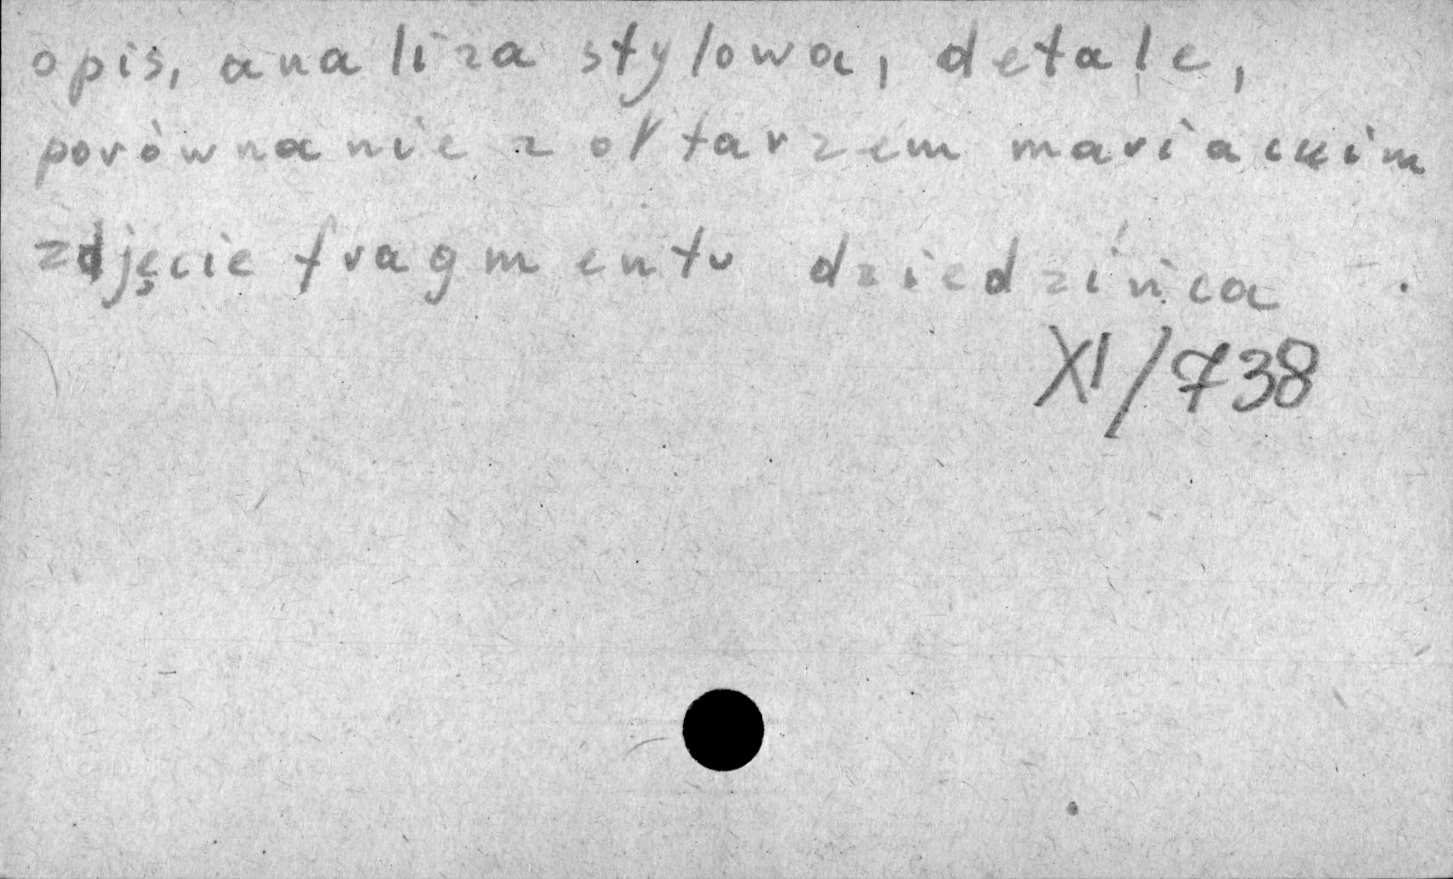 opis, analiza stylowa, detale,
porównanie z ołtarzem mariackim
zdjęcie fragmentu dziedzińca
XI/738